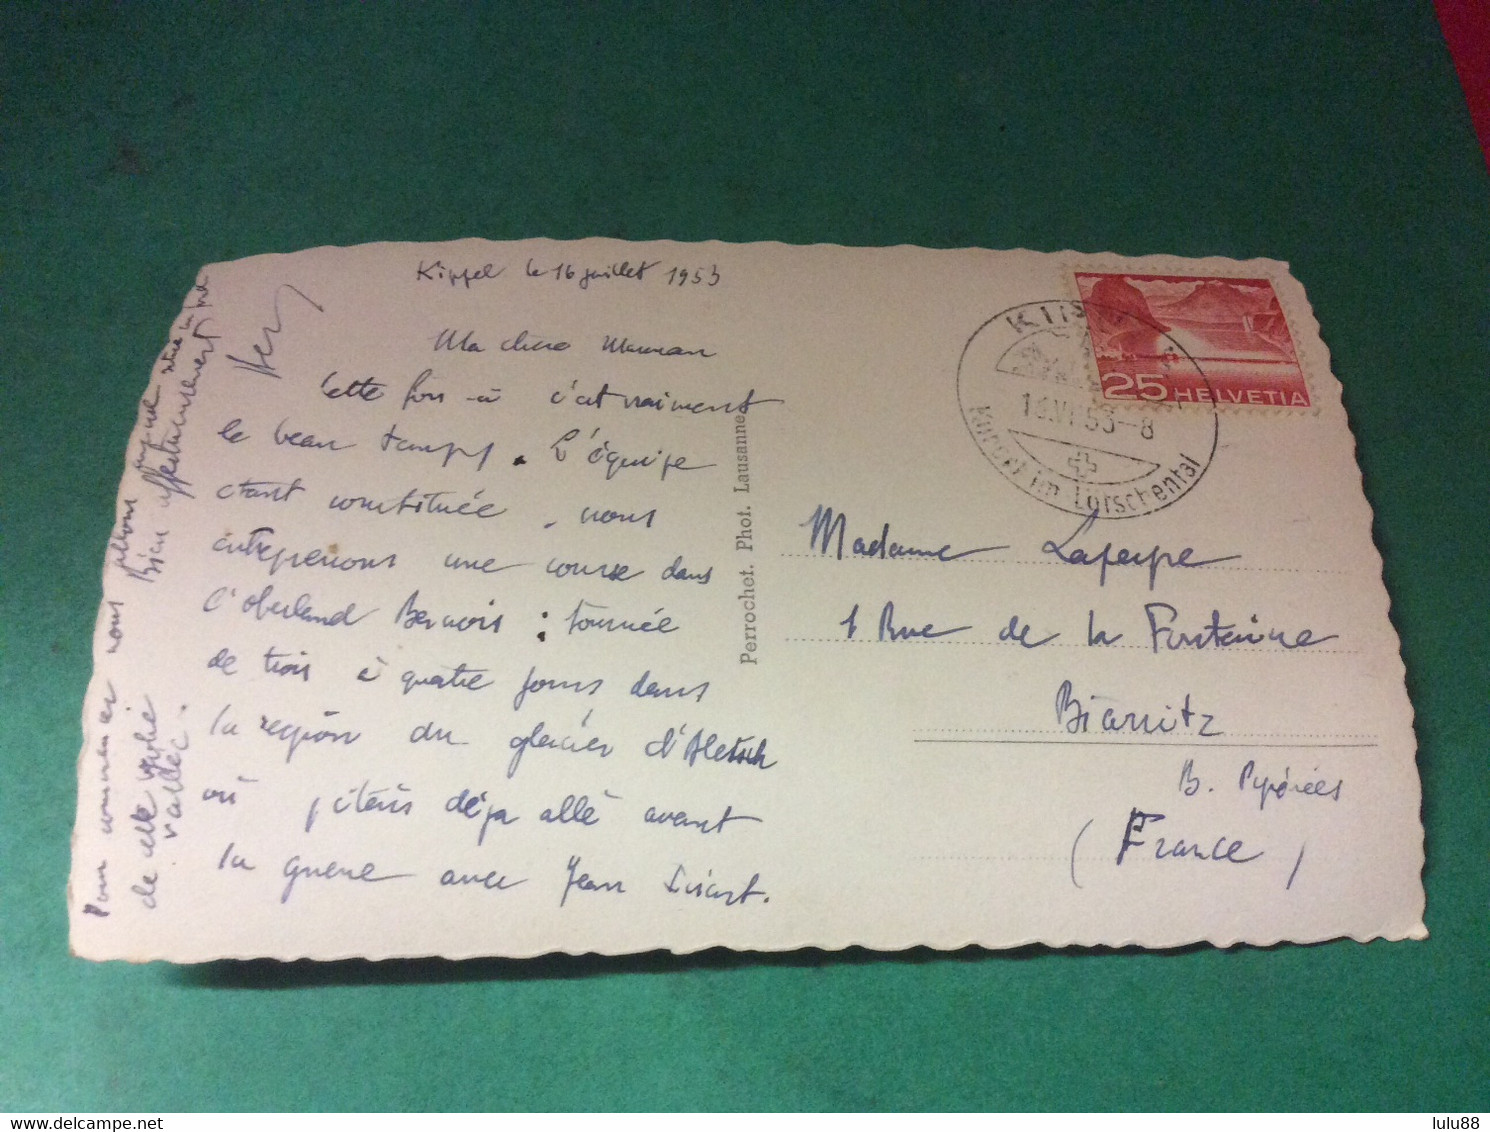 Kippel le 16 juillet 1953
Ma chère Maman
Cette fois-ci c'est vraiment
le beau temps. L'équipe
étant constituée, nous
entreprenons une course dans
l'oberland Bernois : tournée
de trois à quatre jours dans
la région du glacier d'Aletsch
où j'étais déjà allé avant
la guerre avec Jean
Pour commencer nous allons
de cette vallée.
Bien affectueusement
Perrochet. Phot. Lausanne
25 HELVETIA
16.VII.53-8
Kurort im Lötschental
Madame Laperpe
1 Rue de la Fontaine
Biarritz
B. Pyrénées
(France)
delcampe.net
lulu88